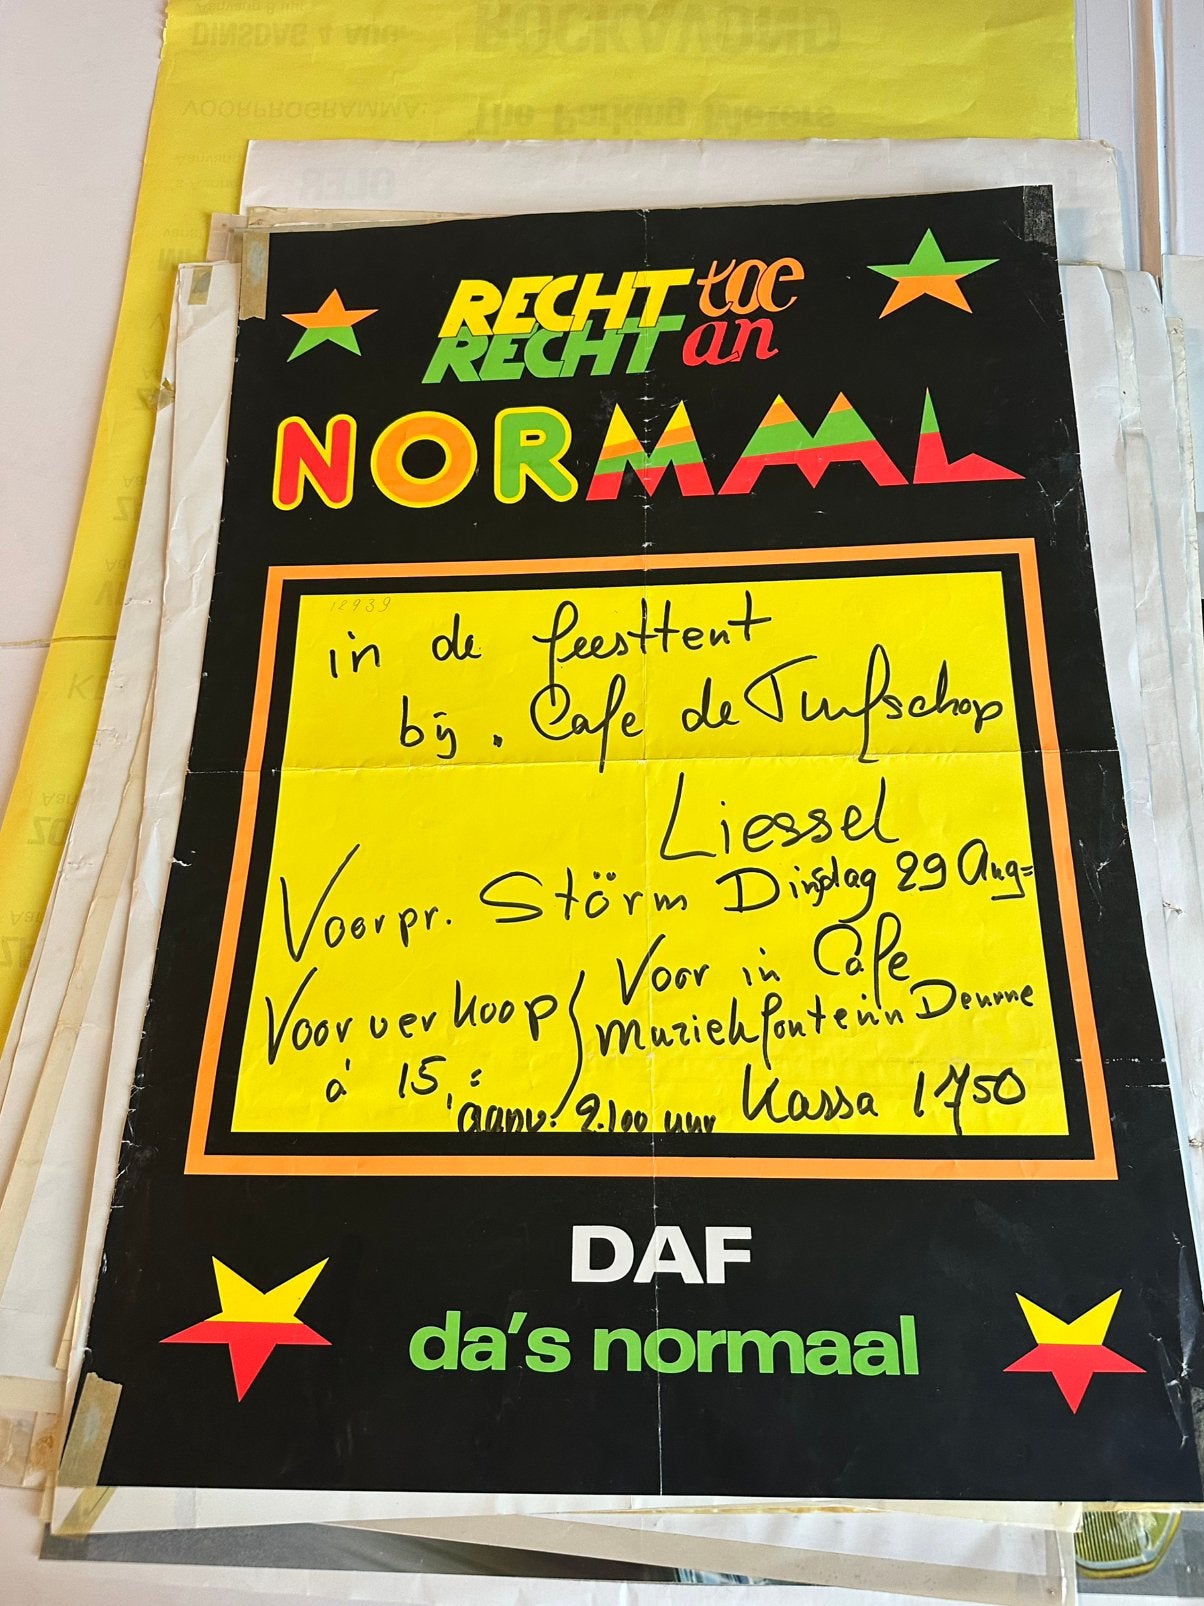 DINSDAG 4 AUG.
ROCKAVOND
VOORPROGRAMMA:
The Parking Meters
RECHT toe
RECHT an
NORMAAL
12939
in de feesttent
bij . Cafe de Turfschop
Liessel
Voorpr. Störm Dinsdag 29 Aug=
Voorverkoop
à 15,=
Voor in Cafe
Muziekfontein Deurne
aanv. 9.00 uur Kassa 1750
DAF
da's normaal